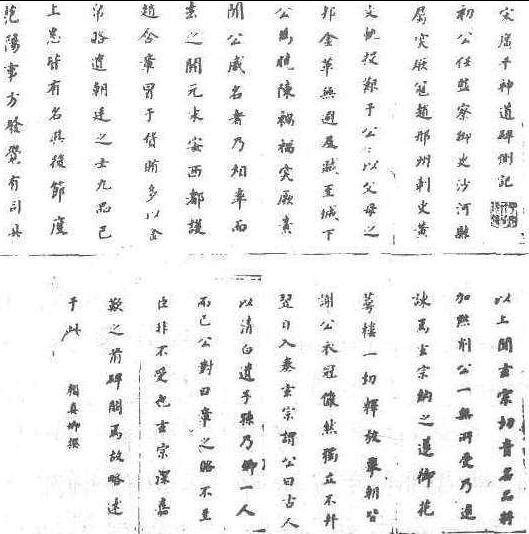 宋廣平神道碑側記
初公任監察御史沙河縣
屬突厥寇趙邢州刺史黃
文軌投艱于公〻以父母之
邦金革無避及賊至城下
公為曉陳禍福突厥素
聞公威名者乃相率而
去之開元末安西都護
趙含章冒于貨賄多以金
帛賂遺朝廷之士九品已
上悉皆有名其後節度
范陽事方發覺有司具
以上聞玄宗切責名品將
加黜削公一無所受乃進
諫焉玄宗納之遂御花
萼樓一切釋放舉朝皆
謝公衣冠儼然獨立不拜
翌日入奏玄宗謂公曰古人
以清白遺子孫乃卿一人
而已公對曰章之賂不至
臣非不受也玄宗深嘉
歎之前碑闕焉故略述
于此 顏真卿撰